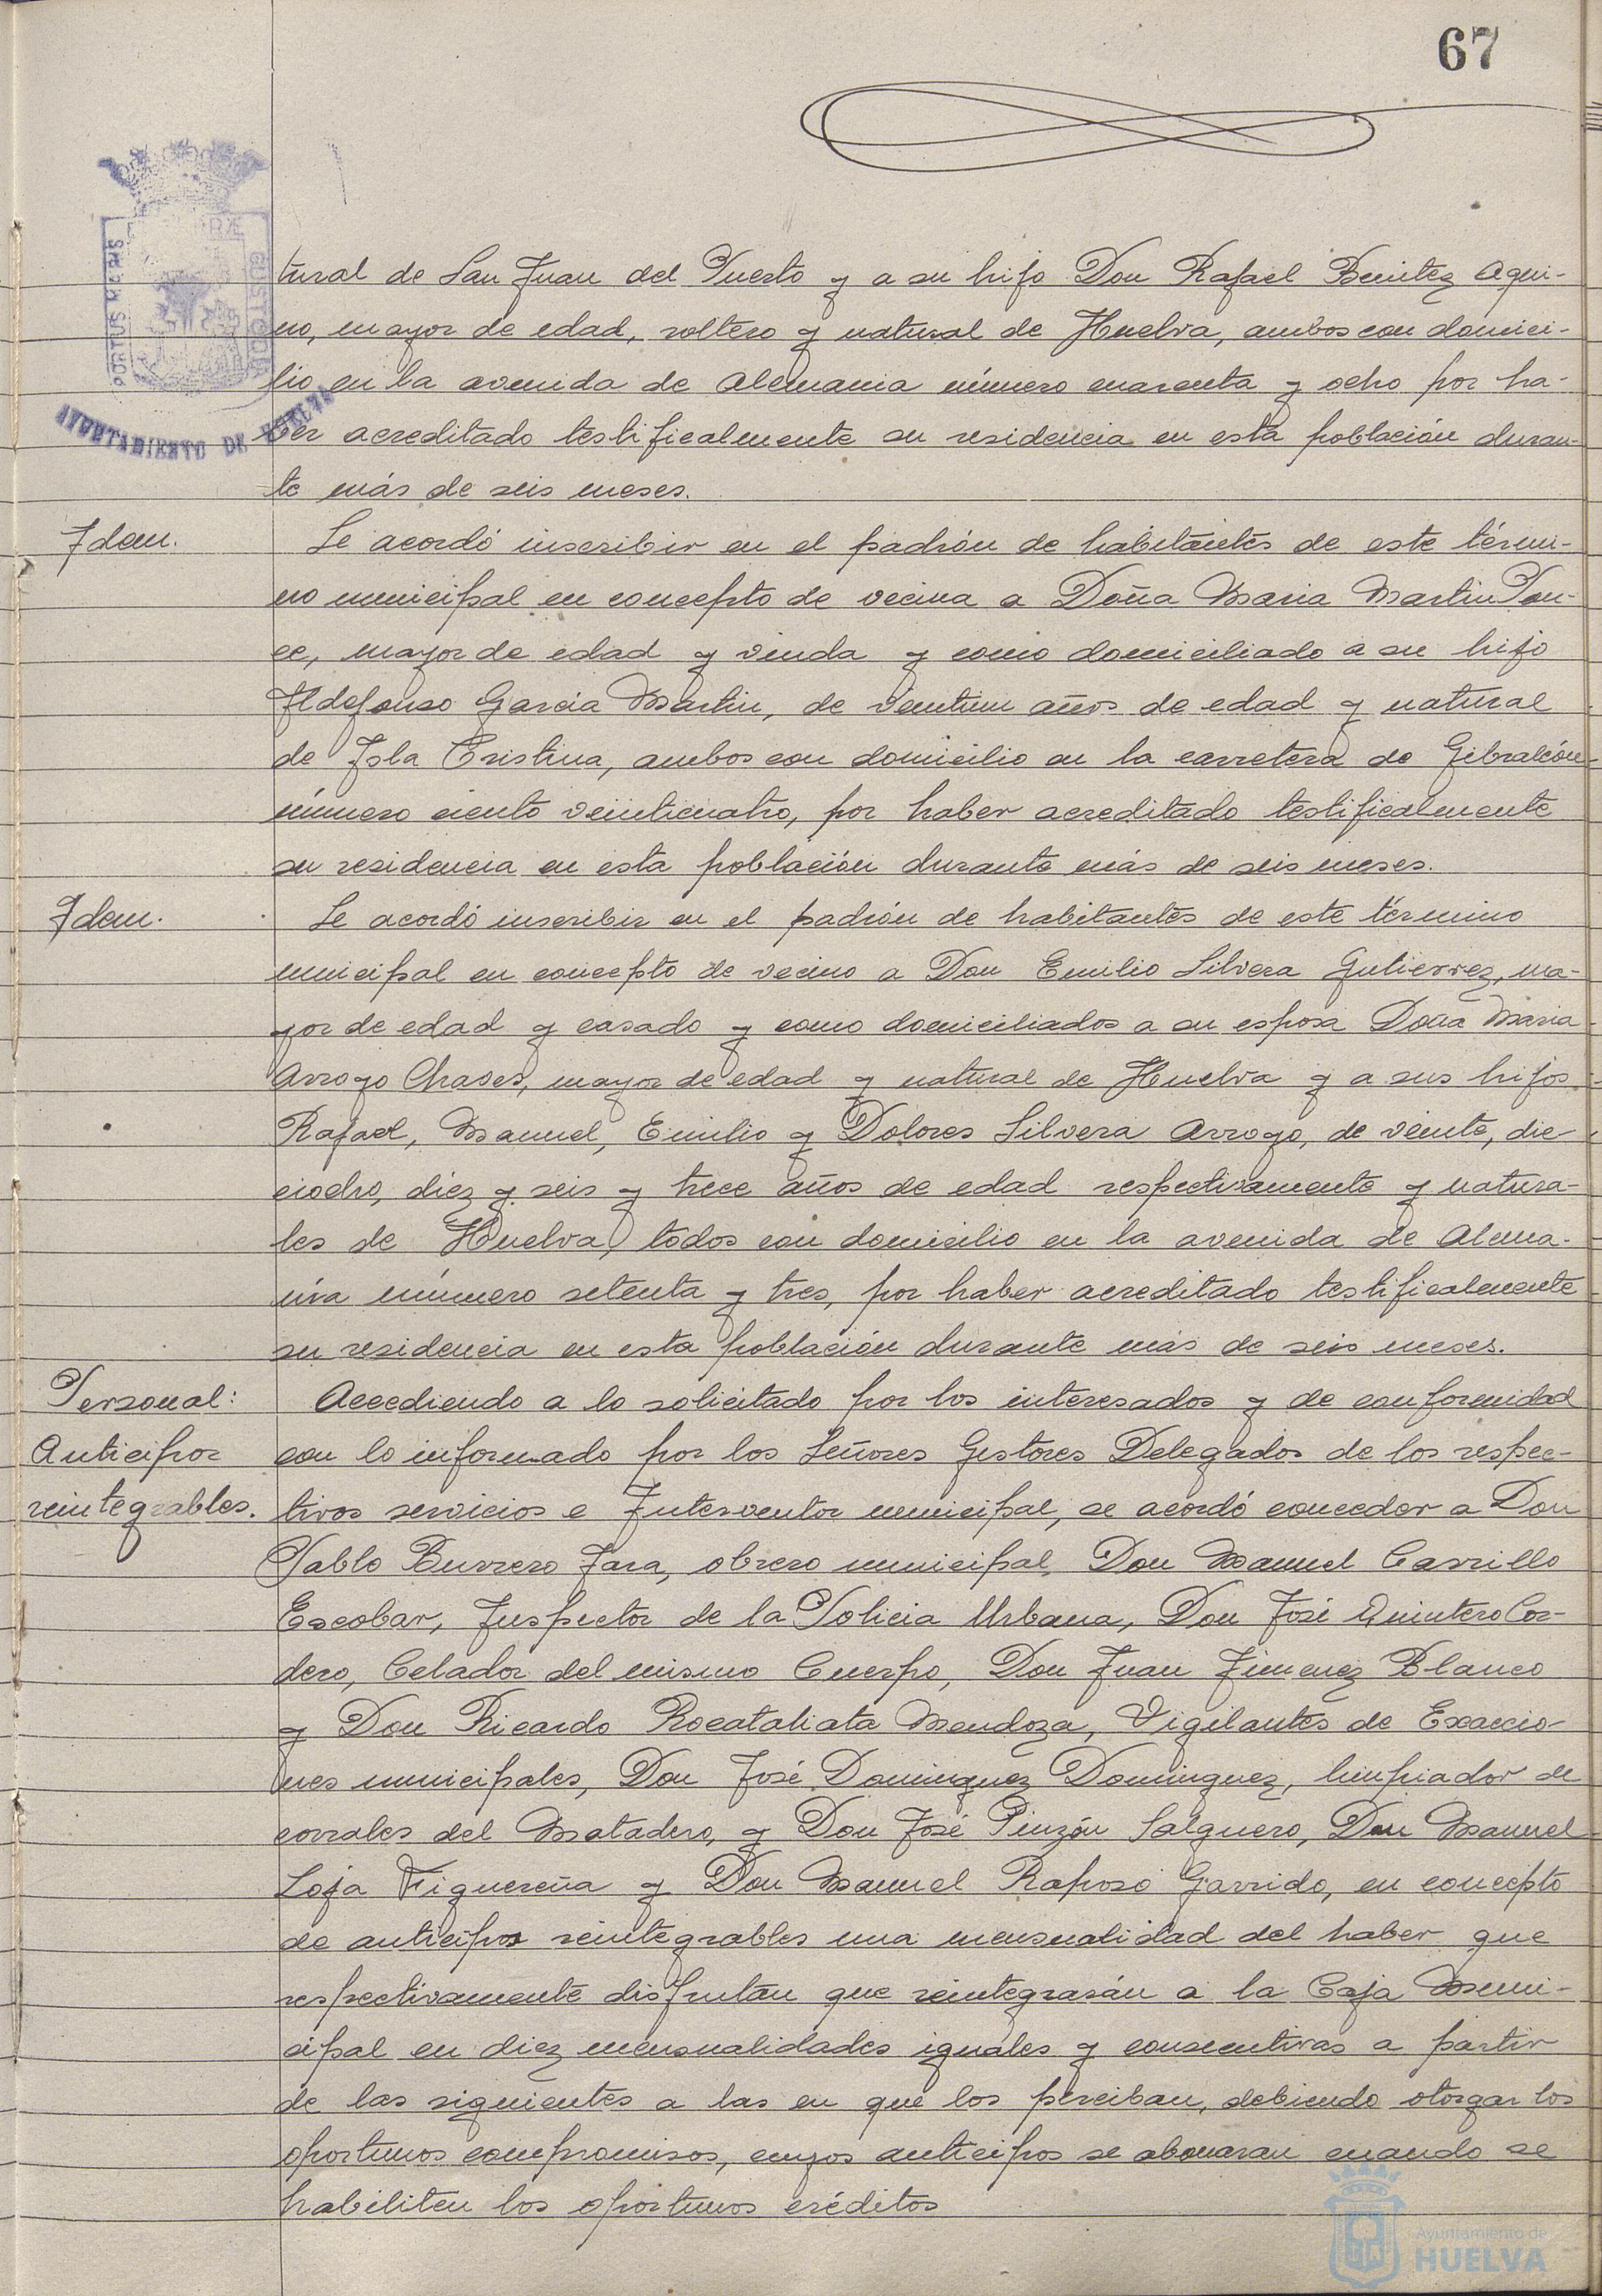 67
PORTUS MARIS
CUSTODIA
AYUNTAMIENTO DE HUELVA
tural de San Juan del Puerto y a su hijo Don Rafael Benitez Aqui-
no, mayor de edad, soltero y natural de Huelva, ambos con domici-
lio en la avenida de Alemania número cuarenta y ocho por ha-
ber acreditado testificalmente su residencia en esta población duran-
te más de seis meses.
Idem.
Se acordó inscribir en el padrón de habitantes de este térmi-
no municipal en concepto de vecina a Doña Maria Martin Pon-
ce, mayor de edad y viuda y como domiciliado a su hijo
Ildefonso Garcia Martin, de veintiun años de edad y natural
de Isla Cristina, ambos con domicilio en la carretera de Gibraleón
número ciento veinticuatro, por haber acreditado testificalmente
su residencia en esta población durante más de seis meses.
Idem.
Se acordó inscribir en el padrón de habitantes de este término
municipal en concepto de vecino a Don Emilio Silvera Gutierrez, ma-
yor de edad y casado y como domiciliados a su esposa Doña Maria
Arroyo Chaves, mayor de edad y natural de Huelva y a sus hijos
Rafael, Manuel, Emilio y Dolores Silvera Arroyo, de veinte, die-
ciocho, diez y seis y trece años de edad respectivamente y natura-
les de Huelva, todos con domicilio en la avenida de Alema-
nia número setenta y tres, por haber acreditado testificalmente
su residencia en esta población durante más de seis meses.
Personal:
Anticipos
reintegrables.
Accediendo a lo solicitado por los interesados y de conformidad
con lo informado por los Señores Gestores Delegados de los respec-
tivos servicios e Interventor municipal, se acordó conceder a Don
Pablo Burrero Jara, obrero municipal, Don Manuel Carrillo
Escobar, Inspector de la Policia Urbana, Don José Quintero Cor-
dero, Celador del mismo Cuerpo, Don Juan Jimenez Blanco
y Don Ricardo Rocataliata Mendoza, Vigilantes de Exaccio-
nes municipales, Don José Dominguez Dominguez, limpiador de
corrales del Matadero, y Don José Pinzón Salguero, Don Manuel
Loja Figuereña y Don Manuel Raposo Garrido, en concepto
de anticipos reintegrables una mensualidad del haber que
respectivamente disfrutan que reintegrarán a la Caja Muni-
cipal en diez mensualidades iguales y consecutivas a partir
de las siguientes a las en que los perciban, debiendo otorgar los
oportunos compromisos, cuyos anticipos se abonaran cuando se
habiliten los oportunos créditos
Ayuntamiento de
HUELVA